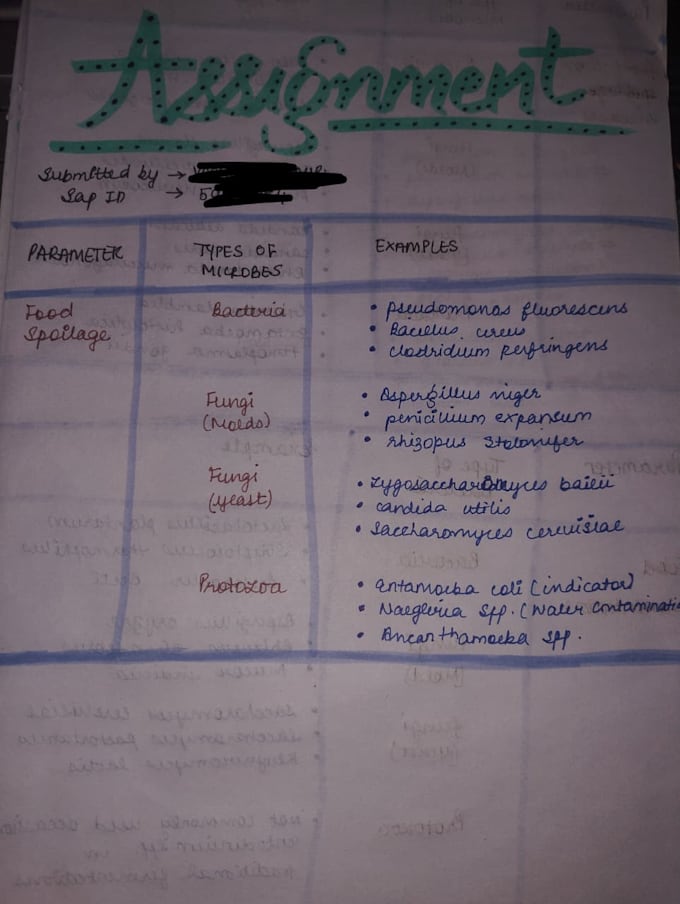 Assignment
Submitted by →
Sap ID →
PARAMETER
TYPES OF
MICROBES
EXAMPLES
Food
Spoilage
Bacteria
• pseudomonas fluorescens
• Bacillus cereus
• clostridium perfringens
Fungi
(Molds)
• Aspergillus niger
• penicillium expansum
• rhizopus stolonifer
Fungi
(yeast)
• Zygosaccharomyces bailii
• candida utilis
• Saccharomyces cerevisiae
Protozoa
• Entamoeba coli (indicator)
• Naegleria spp. (Water Contaminatio
• Ancanthamoeba spp.